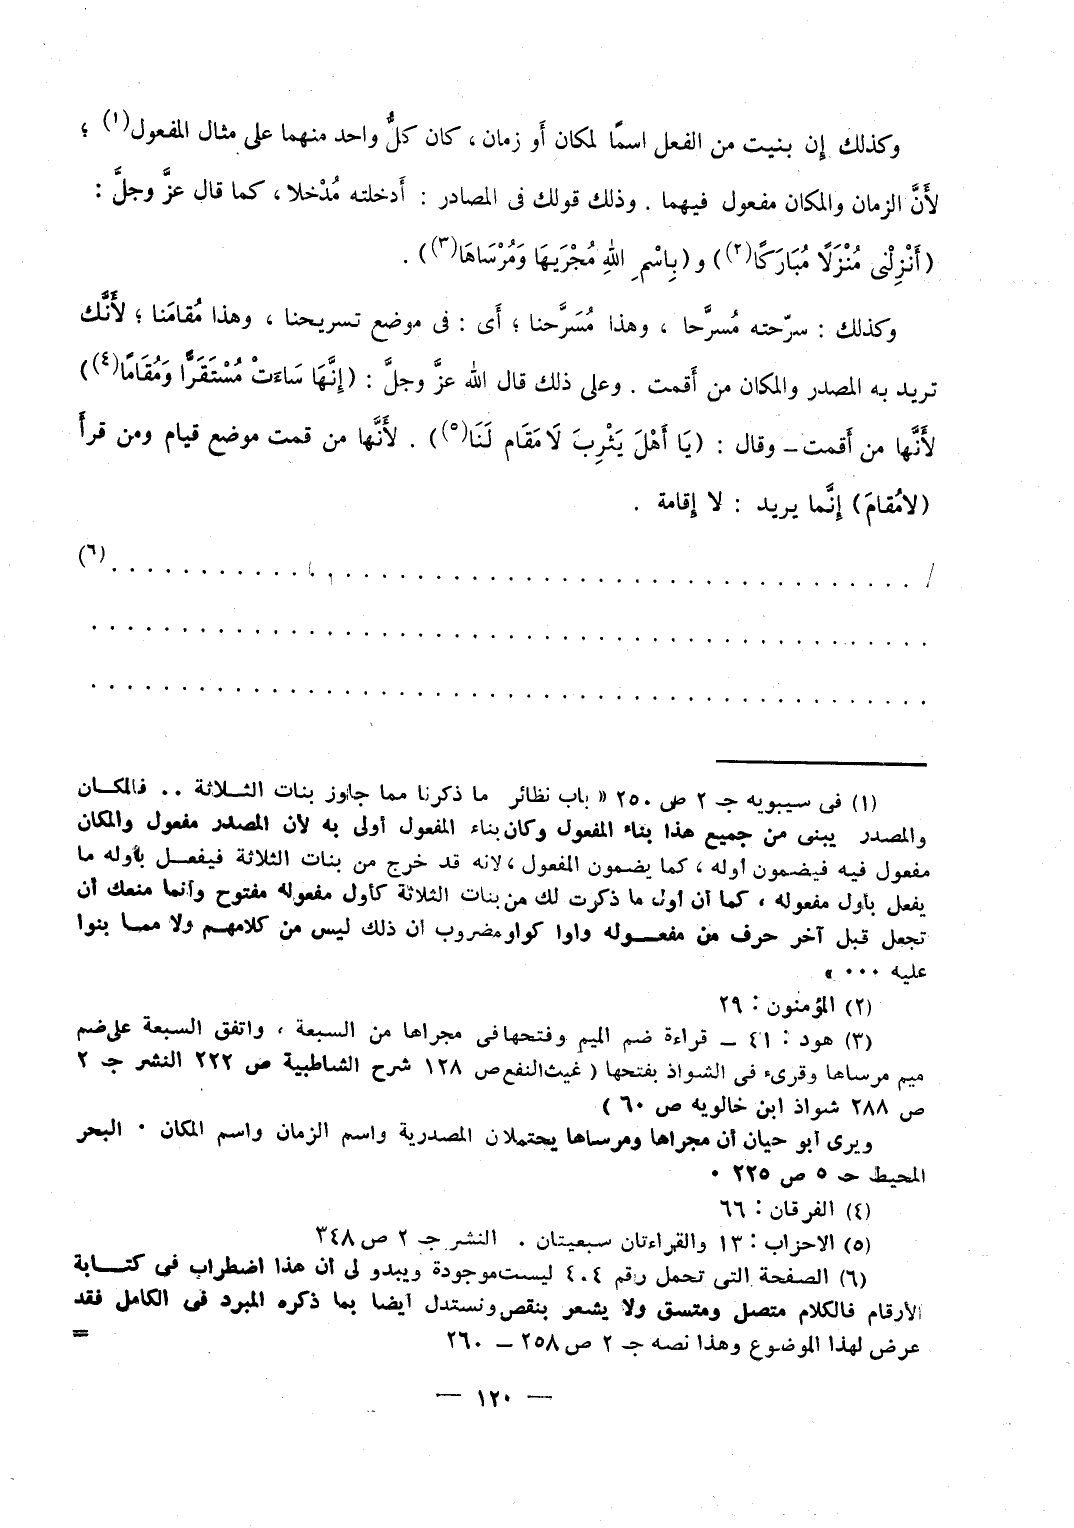 وكذلك إن بنيت من الفعل اسمًا لمكان أو زمان ، كان كلُّ واحد منهما على مثال المفعول(١) ؛
لأَنَّ الزمان والمكان مفعول فيهما . وذلك قولك فى المصادر : أدخلته مُدْخلا ، كما قال عزَّ وجلَّ :
(أَنْزِلْنى مُنْزَلًا مُبَارَكًا(٢)) و (بِاسْمِ اللهِ مُجْرَيهَا وَمُرْسَاهَا(٣)) .
وكذلك : سرّحته مُسرَّحا ، وهذا مُسَرَّحنا ؛ أَى : فى موضع تسريحنا ، وهذا مُقامَنا ؛ لأَنَّك
تريد به المصدر والمكان من أَقمت . وعلى ذلك قال الله عزَّ وجلَّ : (إِنَّهَا سَاءَتْ مُسْتَقَرًّا وَمُقَامًا(٤))
لأَنَّها من أَقمت ــ وقال : (يَا أَهْلَ يَثْرِبَ لَا مَقَام لَنَا(٥)) . لأَنَّها من قمت موضع قيام ومن قرأَ
(لامُقامَ) إِنَّما يريد : لا إقامة .
/ . . . . . . . . . . . . . . . . . . . . . . . . . . . . . . . . . . . . . . . . . . . . (٦)
. . . . . . . . . . . . . . . . . . . . . . . . . . . . . . . . . . . . . . . . . . . . . .
. . . . . . . . . . . . . . . . . . . . . . . . . . . . . . . . . . . . . . . . . . . . . .
(١) فى سيبويه جـ ٢ ص ٢٥٠ « باب نظائر ما ذكرنا مما جاوز بنات الثــلاثة .. فالمكــان
والمصدر يبنى من جميع هذا بناء المفعول وكان بناء المفعول أولى به لأن المصدر مفعول والمكان
مفعول فيه فيضمون أوله ، كما يضمون المفعول ، لانه قد خرج من بنات الثلاثة فيفعــل بأوله ما
يفعل بأول مفعوله ، كما أن أول ما ذكرت لك من بنات الثلاثة كأول مفعوله مفتوح وأنما منعك أن
تجعل قبل آخر حرف من مفعــوله واوا كواو مضروب أن ذلك ليس من كلامهــم ولا ممــا بنوا
عليه ٠٠٠ »
(٢) المؤمنون : ٢٩
(٣) هود : ٤١ ــ قراءة ضم الميم وفتحها فى مجراها من السبعة ، واتفق السبعة على ضم
ميم مرساها وقرىء فى الشواذ بفتحها ( غيث النفع ص ١٢٨ شرح الشاطبية ص ٢٢٢ النشر جـ ٢
ص ٢٨٨ شواذ ابن خالويه ص ٦٠ )
ويرى أبو حيان أن مجراها ومرساها يحتملان المصدرية واسم الزمان واسم المكان ٠ البحر
المحيط حـ ٥ ص ٢٢٥ ٠
(٤) الفرقان : ٦٦
(٥) الاحزاب : ١٣ والقراءتان سبعيتان . النشر جـ ٢ ص ٣٤٨
(٦) الصفحة التى تحمل رقم ٤٠٤ ليست موجودة ويبدو لى أن هذا اضطراب فى كتــابة
الأرقام فالكلام متصل ومتسق ولا يشعر بنقص ونستدل أيضا بما ذكره المبرد فى الكامل فقد
عرض لهذا الموضوع وهذا نصه جـ ٢ ص ٢٥٨ ــ ٢٦٠ =
ــ ١٢٠ ــ